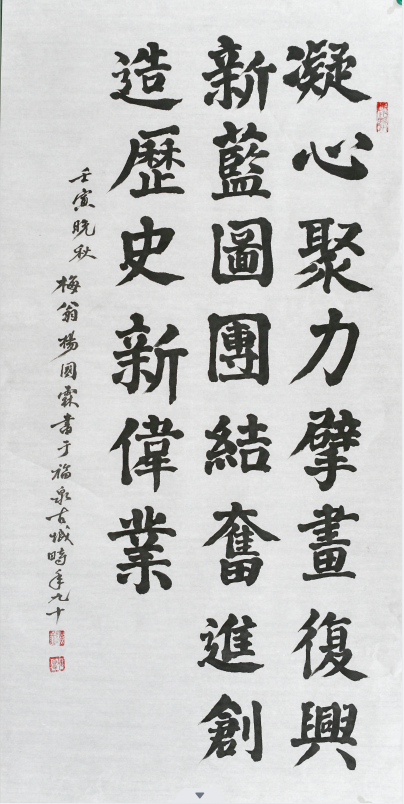 凝心聚力擘畫復興
新藍圖團結奮進創
造歷史新偉業
壬寅晚秋
梅翁楊國霖書于福泉古城時年九十